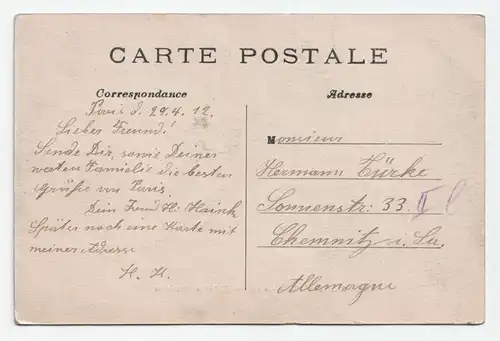 CARTE POSTALE
Correspondance
Paris d. 29.4.12.
Lieber Freund!
Sende Dir, sowie Deiner
werten Familie die besten
Grüße von Paris.
Dein Freund H. Hainh
Später noch eine Karte mit
meiner Adresse
H. H.
Adresse
Monsieur
Hermann Türke
Sonnenstr: 33 II
Chemnitz i. Sa.
Allemagne